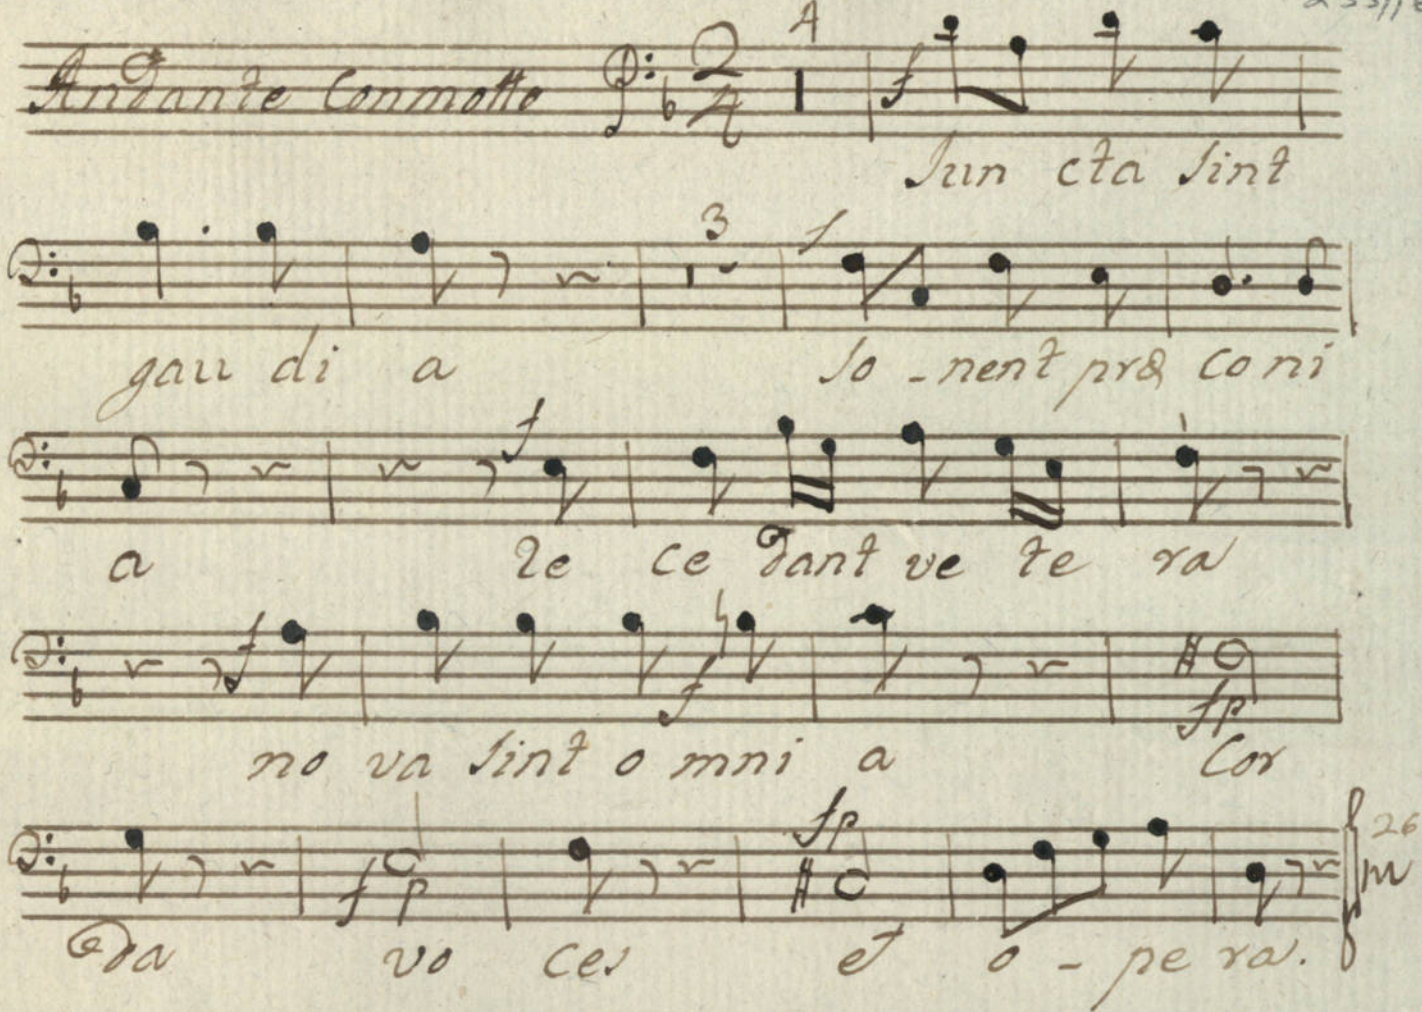 Andante Conmotto 2/4 4 f
Jun cta sint
3 f
gau di a so - nent præ co ni
f
a te ce dant ve te ra
f f
no va sint o mni a Cor
fp
fp f p 26
da vo ces et o - pe ra.